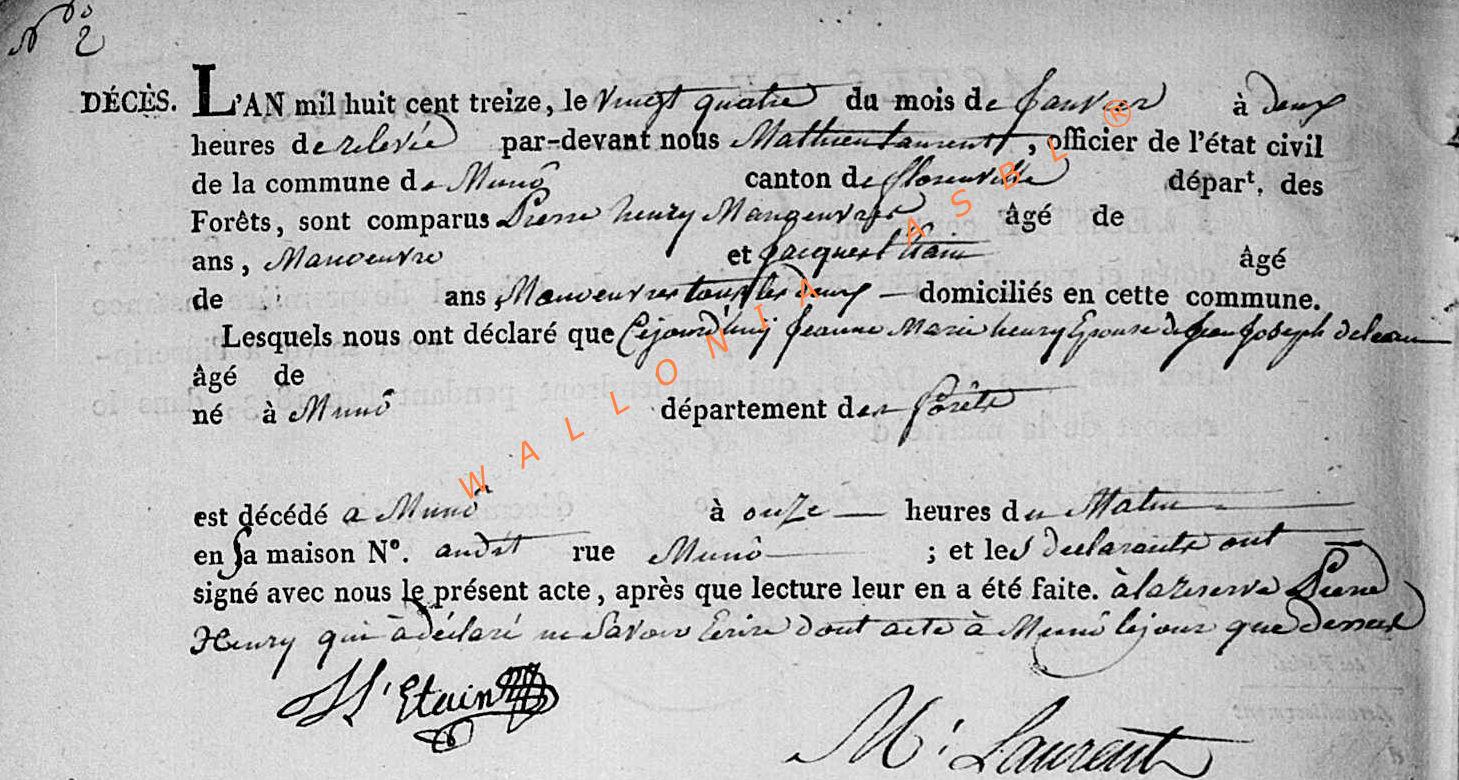 N.° 2
DÉCÈS. L'AN mil huit cent treize, le vingt quatre du mois de Janvier à deux
heures de relevée par-devant nous Mathieu Laurent, officier de l'état civil
de la commune de Munô canton de florenvilleépart. des
Forêts, sont comparus Pierre henry Manoeuvres âgé de
ans, Manoeuvre et Jacques l'Etain âgé
de ans, Manoeuvres tous les deux — domiciliés en cette commune.
Lesquels nous ont déclaré que Cejourd'huij Jeanne Marie henry Epouse de Jean Joseph
âgé de
né à Munô département des forêts
est décédé a Munô à onze — heures du Matin
en Sa maison N°. audit rue Munô ; et les declarants ont
signé avec nous le présent acte, après que lecture leur en a été faite. à la reserve Pierre
Henry qui à déclaré ne Savoir Ecrire dont acte à Munô le jour que dessus
J l'Etain
M. Laurent
WALLONIA ASBL ®